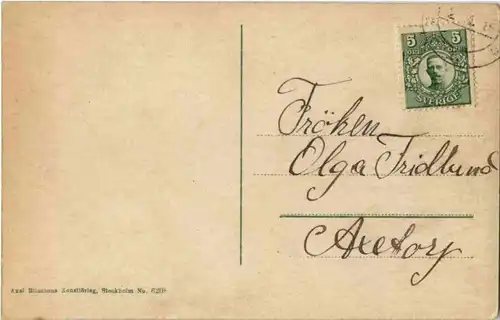 5 5
ÖRE
SVERIGE
Fröken
Olga Fridlund
Axetorp
Axel Eliassons Konstförlag, Stockholm No. 6208